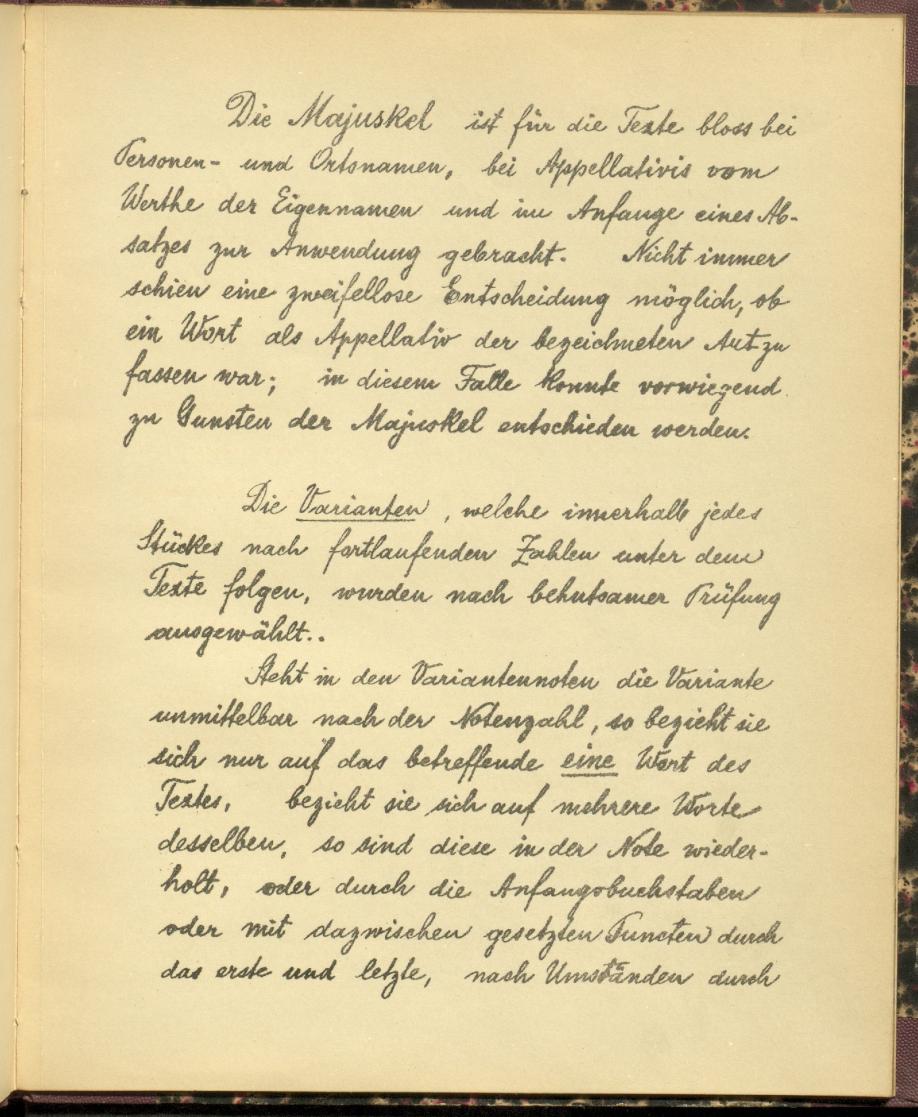 Die Majuskel ist für die Texte bloss bei
Personen- und Ortsnamen, bei Appellativis vom
Werthe der Eigennamen und im Anfange eines Ab-
satzes zur Anwendung gebracht. Nicht immer
schien eine zweifellose Entscheidung möglich, ob
ein Wort als Appellativ der bezeichneten Art zu
fassen war; in diesem Falle konnte vorwiegend
zu Gunsten der Majuskel entschieden werden.
Die Varianten, welche innerhalb jedes
Stückes nach fortlaufenden Zahlen unter dem
Texte folgen, wurden nach behutsamer Prüfung
ausgewählt..
Steht in den Variantennoten die Variante
unmittelbar nach der Notenzahl, so bezieht sie
sich nur auf das betreffende eine Wort des
Textes, bezieht sie sich auf mehrere Worte
desselben, so sind diese in der Note wieder-
holt, oder durch die Anfangsbuchstaben
oder mit dazwischen gesetzten Puncten durch
das erste und letzte, nach Umständen durch